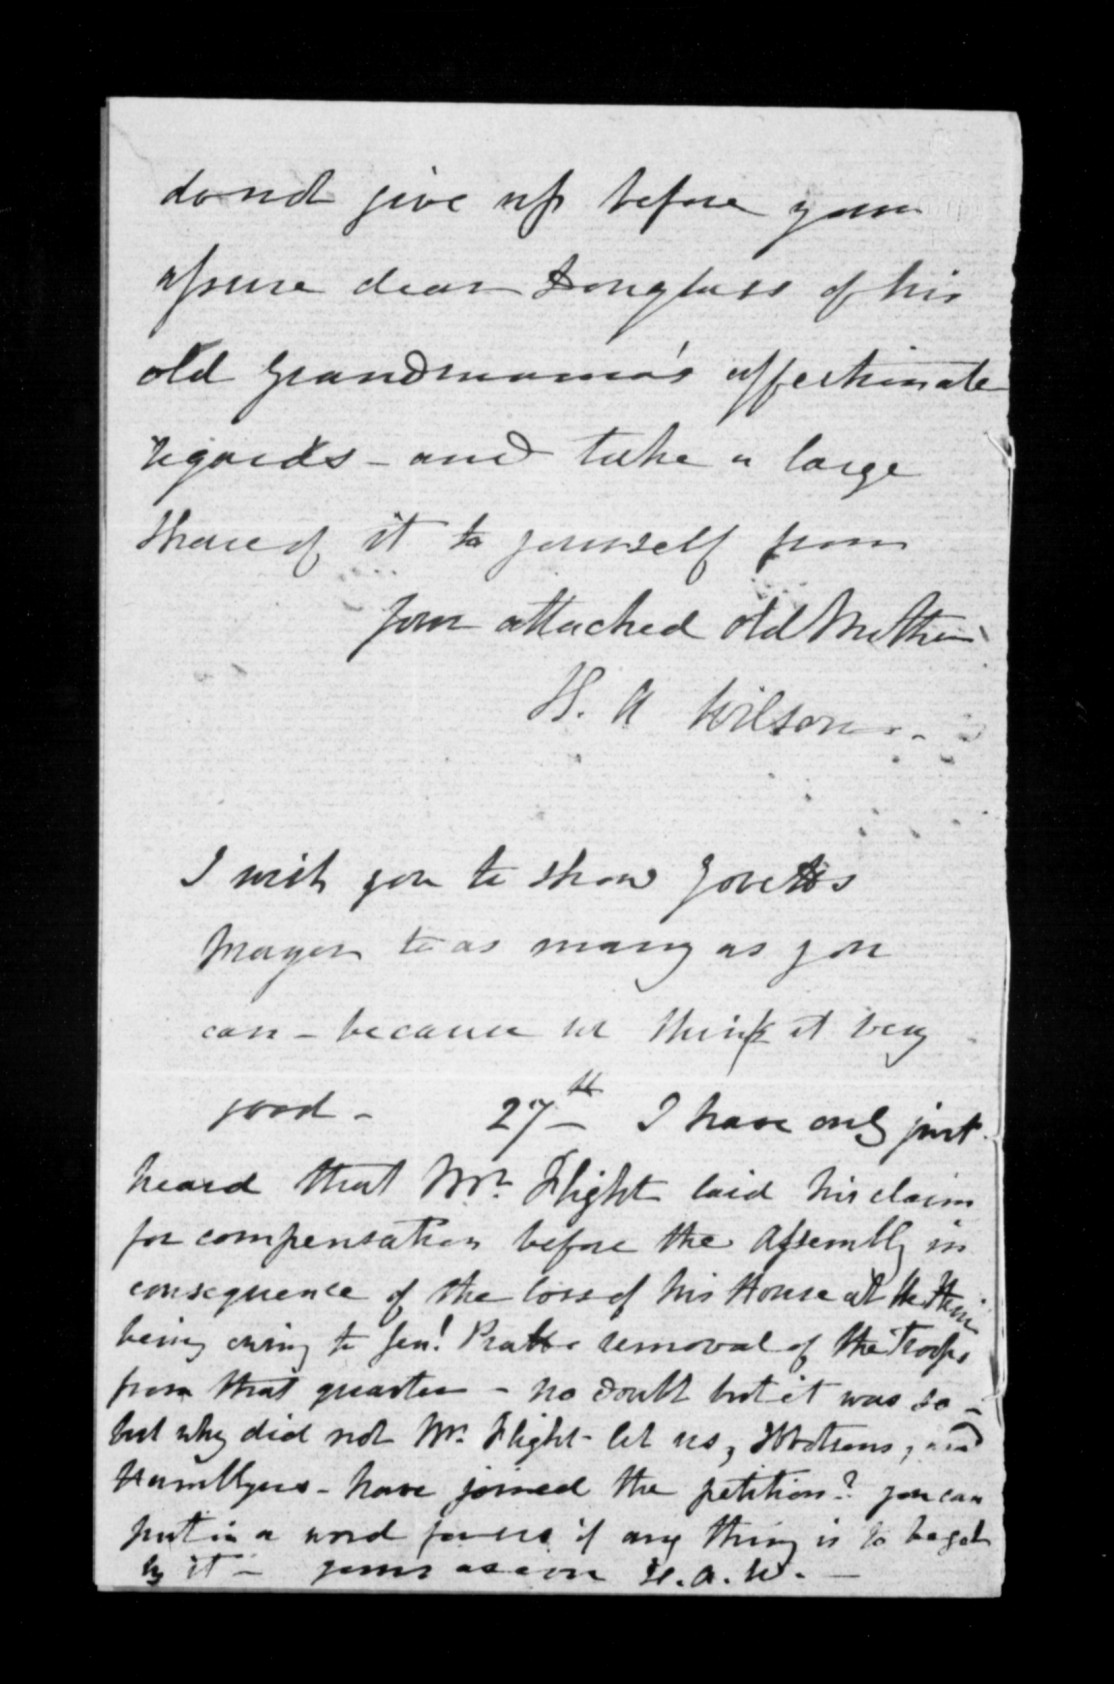 do not give up before you
assure dear Douglass of his
old Grandmama's affectionate
regards - and take a large
share of it to yourself from
your attached old Mother
H. A Wilson -
I wish you to show
to as many as you
can - because we think it very
good - 27th I have only just
heard that Mr. Flight laid his claim
for compensation before the Assembly in
consequence of the loss of his House at the
being owing to Genl Pratts removal of the Troops
from that quarter - no doubt but it was so -
but why did not Mr. Flight let us, and
have joined the petition? you can
put in a word for us if any thing is to be got
by it - yours as ever H. A. W. -